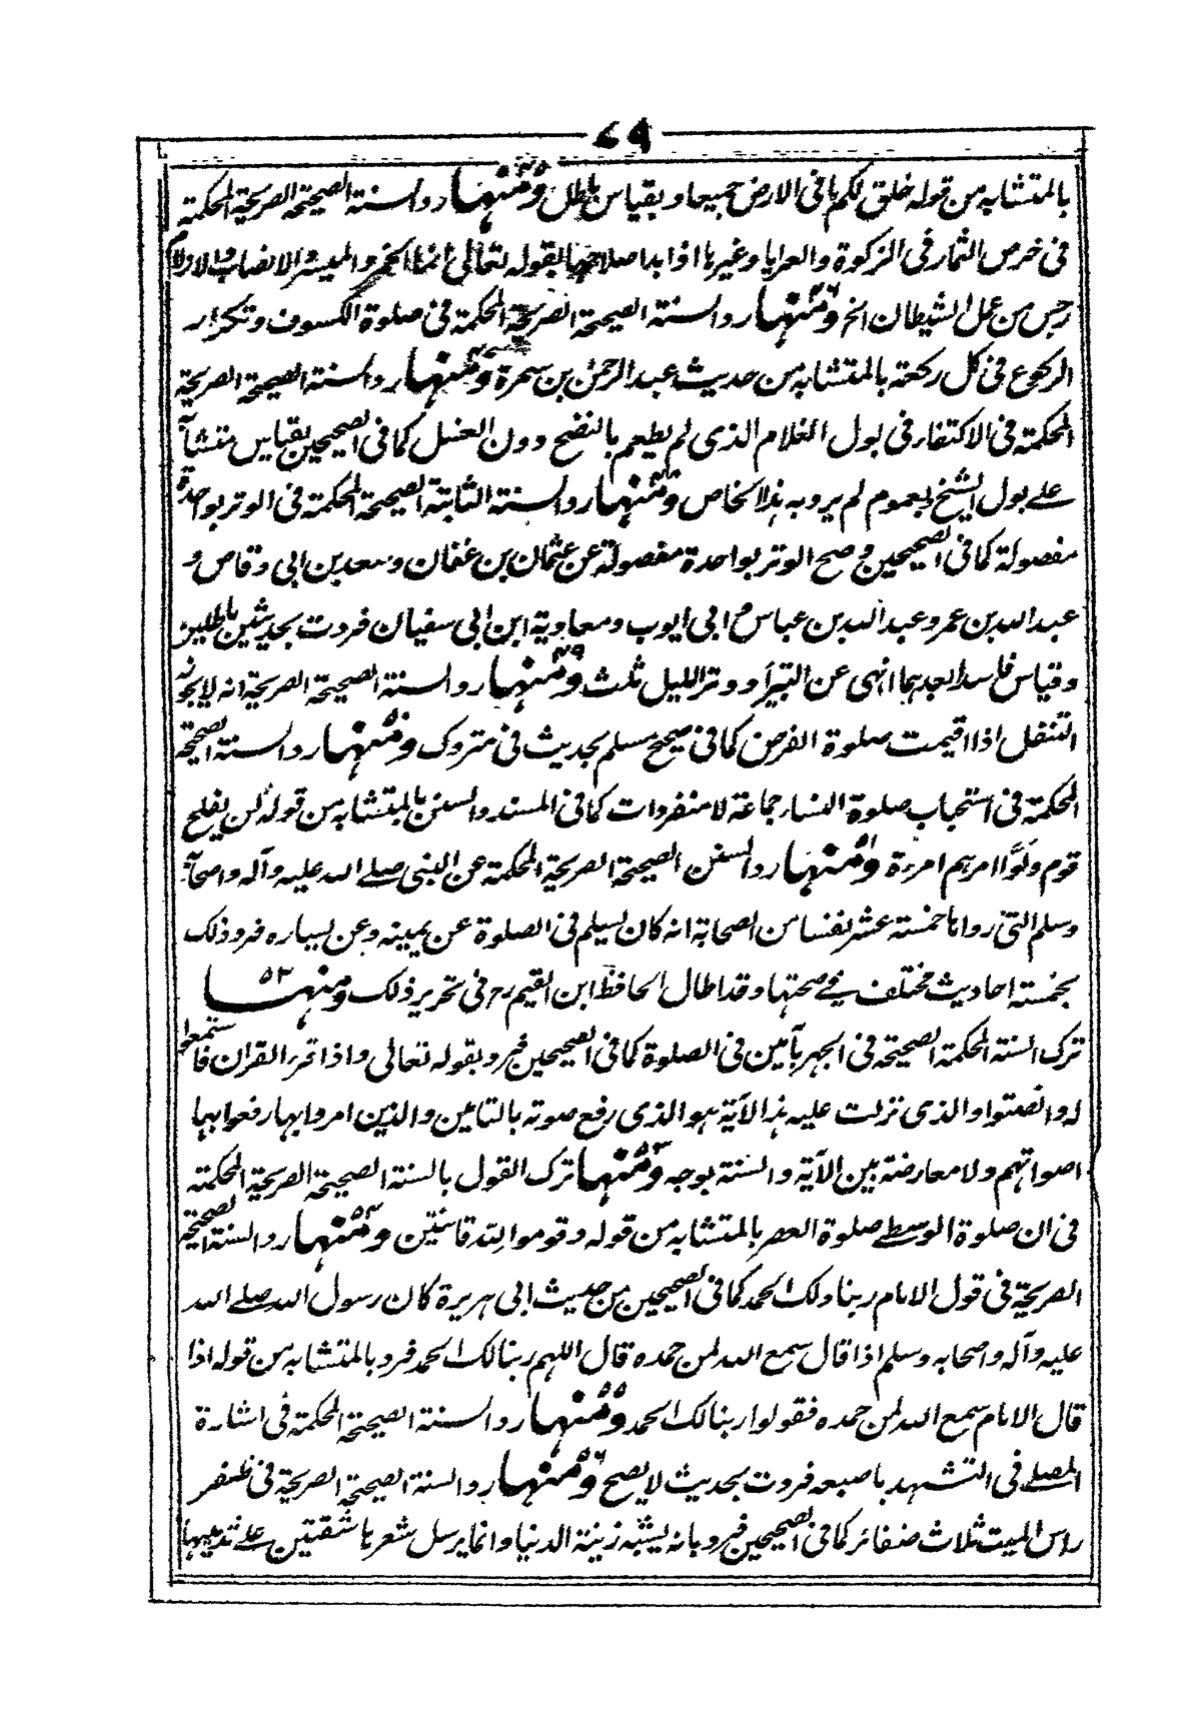 ٧٩
بالمتشابه من قوله خلق لكم ما فى الارض جميعا وبقياس باطل ومنها ٤٥ رد السنة الصحيحة الصريحة المحكمة
فى خرص الثمار فى الزكوة والعرايا وغيرها اذا بدا صلاحها بقوله تعالى انما الخمر والميسر والانصاب والازلام
رجس من عمل الشيطان الخ ومنها ٤٦ رد السنة الصحيحة الصريحة المحكمة فى صلوة الكسوف وتكرار
الركوع فى كل ركعة بالمتشابه من حديث عبد الرحمن بن سمرة ومنها رد السنة الصحيحة الصريحة
المحكمة فى الاكتفاء فى بول الغلام الذى لم يطعم بالنضح دون الغسل كما فى الصحيحين بقياس متشابه
على بول الشيخ وبعموم لم يرد به هذا الخاص ومنها ٤٨ رد السنة الثابتة الصحيحة المحكمة فى الوتر بواحدة
مفصولة كما فى الصحيحين وصح الوتر بواحدة مفصولة عن عثمان بن عفان وسعد بن ابى وقاص و
عبد الله بن عمر وعبد الله بن عباس وابى ايوب ومعاوية ابن ابى سفيان فردت بحديثين باطلين
وقياس فاسد احدهما نهى عن البتيراء ووتر الليل ثلث ومنها ٤٩ رد السنة الصحيحة الصريحة انه لا يجوز
التنفل اذا اقيمت صلوة الفرض كما فى صحيح مسلم بحديث فى متروك ومنها ٥٠ رد السنة الصحيحة
المحكمة فى استحباب صلوة النساء جماعة لا منفردات كما فى المسند والسنن بالمتشابه من قوله لن يفلح
قوم ولّوا امرهم امرءة ومنها ٥١ رد السنن الصحيحة الصريحة المحكمة عن النبى صلے الله عليه وآله واصحابه
وسلم التى رواها خمسة عشر نفسا من الصحابة انه كان يسلم فى الصلوة عن يمينه وعن يساره فرد ذلك
بخمسة احاديث مختلف فے صحتها وقد اطال الحافظ ابن القيم رح فى تحرير ذلك ومنها ٥٢
ترك السنة المحكمة الصحيحة فى الجهر بآمين فى الصلوة كما فى الصحيحين فرد بقوله تعالى واذا قرء القران فاستمعوا
له وانصتوا والذى نزلت عليه هذا الآية هو الذى رفع صوته بالتامين والذين امروا بها رفعوا بها
اصواتهم ولا معارضة بين الآية والسنة بوجه ومنها ٥٣ ترك القول بالسنة الصحيحة الصريحة المحكمة
فى ان صلوة الوسطے صلوة العصر بالمتشابه من قوله وقوموا لله قانتين ومنها ٥٤ رد السنة الصحيحة
الصريحة فى قول الامام ربنا ولك الحمد كما فى الصحيحين من حديث ابى هريرة كان رسول الله صلے الله
عليه وآله واصحابه وسلم اذا قال سمع الله لمن حمده قال اللهم ربنا لك الحمد فرد بالمتشابه من قوله اذا
قال الامام سمع الله لمن حمده فقولوا ربنا لك الحمد ومنها ٥٥ رد السنة الصحيحة المحكمة فى اشارة
المصلے فى التشهد باصبعه فردت بحديث لا يصح ومنها ٥٦ رد السنة الصحيحة الصريحة فى ظفر
راس الميت ثلاث ضفائر كما فى الصحيحين فرد بانه يشبه زينة الدنيا وانما يرسل شعرها شقتين علے ثدييها